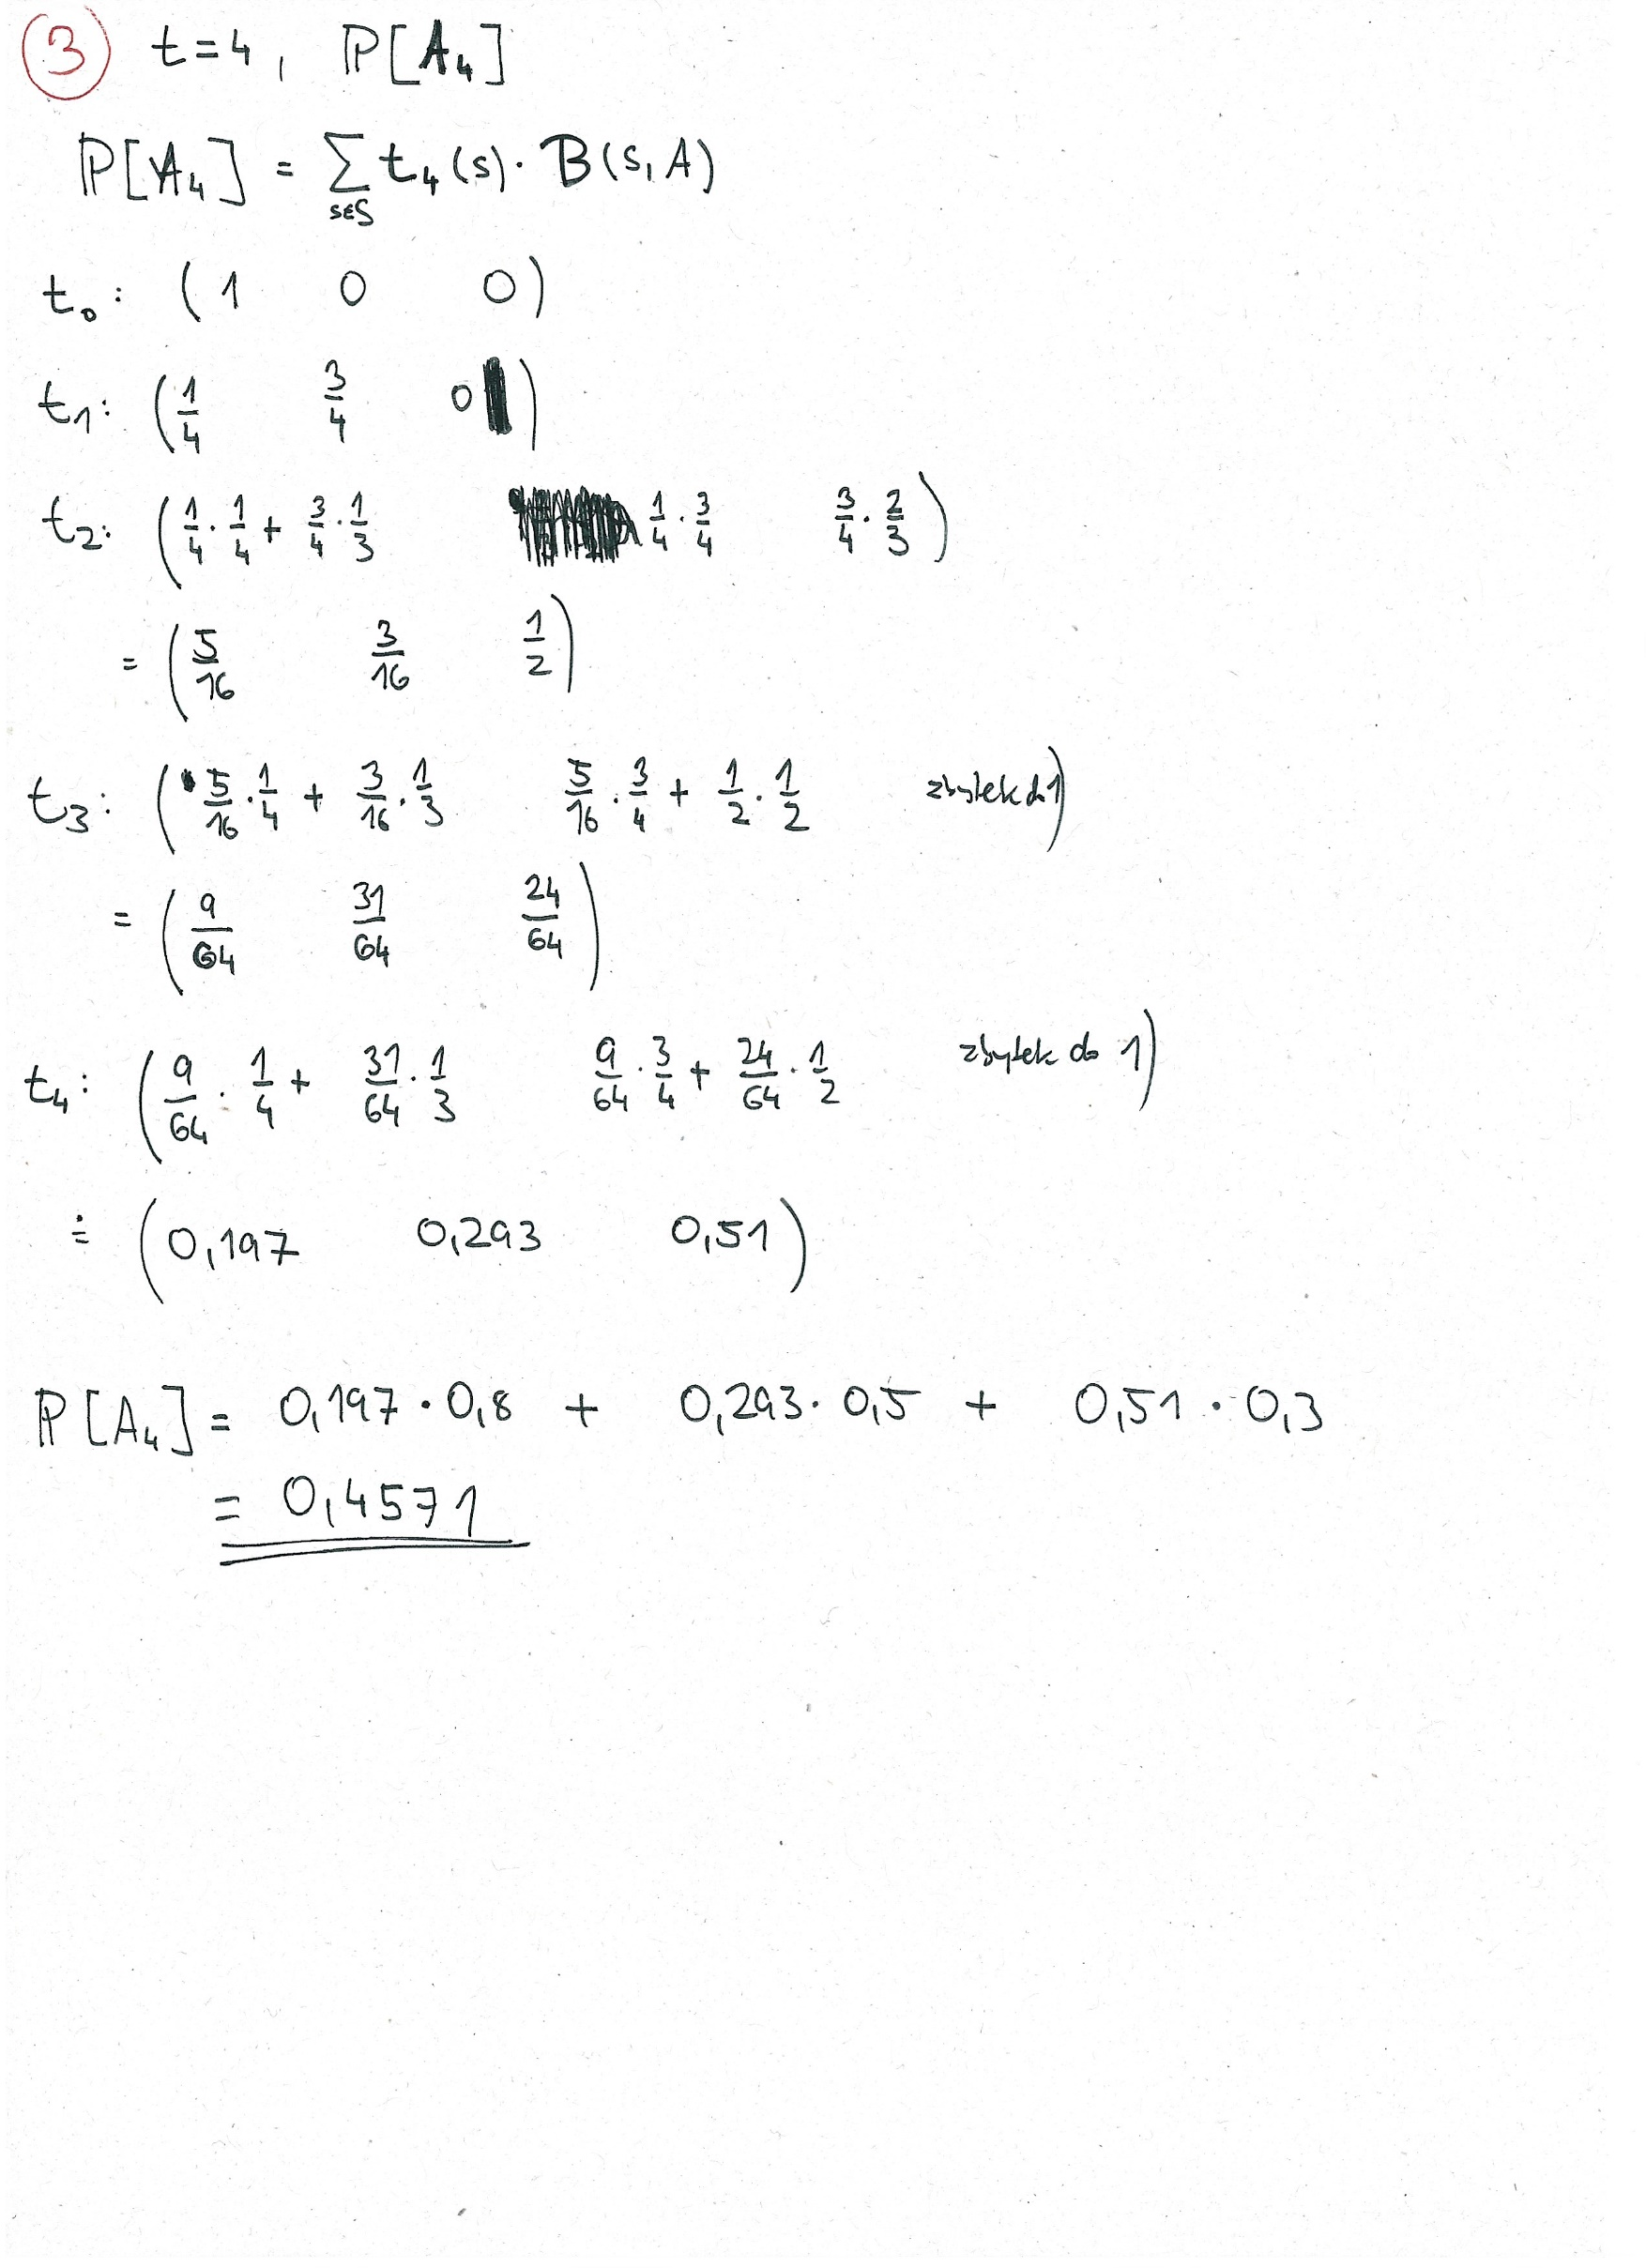 3 t=4, ℙ[A₄]
ℙ[A₄] = ∑_{s∈S} t₄(s)·B(s,A)
t₀: (1 0 0)
t₁: (1/4 3/4 0)
t₂: (1/4·1/4 + 3/4·1/3 1/4·3/4 3/4·2/3)
= (5/16 3/16 1/2)
t₃: (5/16·1/4 + 3/16·1/3 5/16·3/4 + 1/2·1/2 zbytek do 1)
= (9/64 31/64 24/64)
t₄: (9/64·1/4 + 31/64·1/3 9/64·3/4 + 24/64·1/2 zbytek do 1)
≐ (0,197 0,293 0,51)
ℙ[A₄] = 0,197·0,8 + 0,293·0,5 + 0,51·0,3
= 0,4571